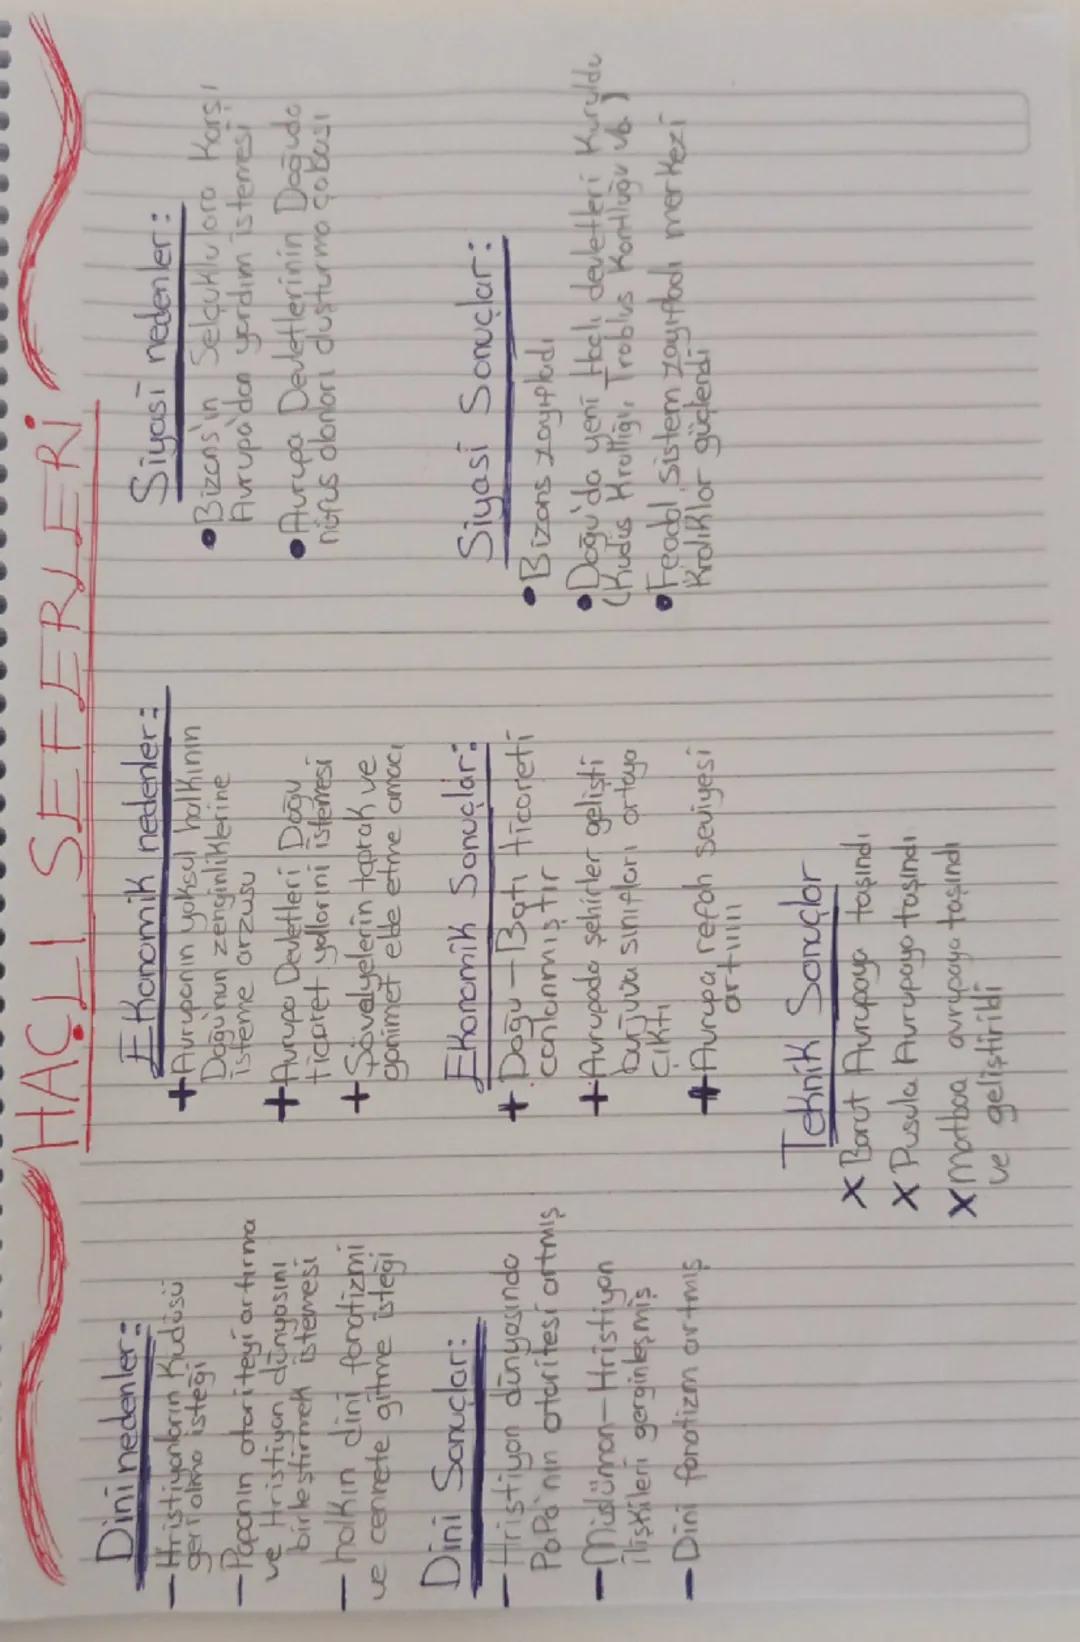 HAÇLI SEFERLERİ
Dini nedenler:
- Hristiyanların Kudüsü
geri alma isteği
- Papanın otoriteyi artırma
ve Hristiyan dünyasını
birleştirmek istemesi
- halkın dini fanatizmi
ve cennete gitme isteği
Dini Sonuçlar:
- Hristiyan dünyasında
Papa'nın otoritesi artmış
- Müslüman-Hristiyan
ilişkileri gerginleşmiş
- Dini fanatizm artmış
Ekonomik nedenler:
+ Avrupanın yoksul halkının
Doğu'nun zenginliklerine
isteme arzusu
+ Avrupa Devletleri Doğu
ticaret yollarını istemesi
+ Şövalyelerin toprak ve
ganimet elde etme amacı
Ekonomik Sonuçlar:
+ Doğu-Batı ticareti
canlanmıştır
+ Avrupada şehirler gelişti
burjuva sınıfları ortaya
çıktı
+ Avrupa refah seviyesi
arttııı
Teknik Sonuçlar
x Barut Avrupaya taşındı
x Pusula Avrupaya taşındı
x matbaa avrupaya taşındı
ve geliştirildi
Siyasi nedenler:
• Bizans'ın Selçuklulara Karşı
Avrupa'dan yardım istemesi
• Avrupa Devletlerinin Doğuda
nüfus alanları oluşturma çabası
Siyasi Sonuçlar:
• Bizans zayıfladı
• Doğu'da yeni Haçlı devletleri Kuruldu
(Kudüs Krallığı, Trablus Kontluğu vb.)
• Feodal Sistem zayıfladı merkezi
Krallıklar güçlendi